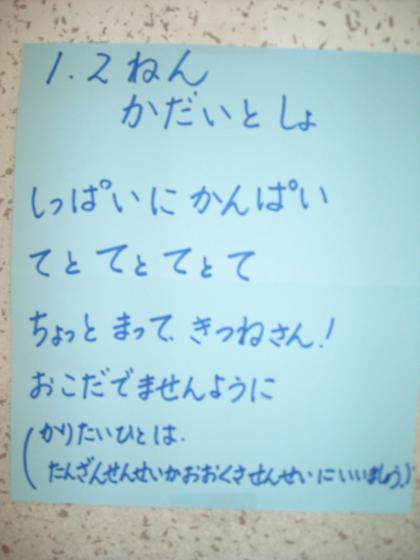 1.2ねん
かだいとしょ
しっぱいにかんぱい
てと てと てと て
ちょっと まって、きつねさん!
おこだでませんように
(かりたいひとは、
たんざんせんせいかおおくさせんせいにいいましょう。)